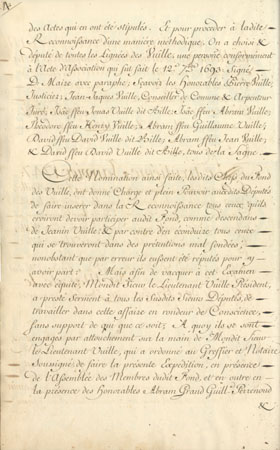 des Actes qui en ont été stipulés. Et pour proceder à ladite
Reconnoissance d'une maniére méthodique, On a choisi &
député de toutes les Lignées des Vuille, une personne conformément
à l'Acte d'Association qui fut fait le 12.e 1693. Signé
D. Maire avec paraphe; Scavoir les Honorables Pierre Vuille,
Justicier; Jean Jaques Vuille, Conseiller de Comune & Arpenteur
Juré; Isâc ffeu Jonas Vuille dit Bille; Isâc ffeu Abram Vuille;
Théodore ffeu Henry Vuille; Abram ffeu Guillaume Vuille;
David ffeu David Vuille dit Bille; Abram ffeu Jean Vuille;
& David ffeu David Vuille dit Bille, tous de la Sagne.
Cette Nomination ainsi faite, lesdits Chefs du Fond
des Vuille, ont donné Charge et plein Pouvoir auxdits Députés
de faire inserer dans la Reconnoissance tous ceux, qu'ils
croiront devoir participer audit Fond, comme descendans
de Jeanin Vuille: & par contre d'en éconduire tous ceux
qui se trouveront dans des prétentions mal fondées;
nonobstant que par erreur ils eussent été réputés pour y
avoir part: Mais afin de vacquer à cet Examen
avec équité, Mondit Sieur le Lieutenant Vuille Président,
a presté Serment à tous les Susdits Sieurs Députés, de
travailler dans cette affaire en rondeur de Conscience,
sans support de qui que ce soit; A quoy ils se sont
engagés par attouchement sur la main de Mondit Sieur
le Lieutenant Vuille, qui a ordonné au Greffier et Notaire
Soussigné de faire la présente Expédition, en présence
de l'Assemblée des Membres dudit Fond, et en outre en
la présence des Honorables Abram Grand Guill.e Perrenoud
&